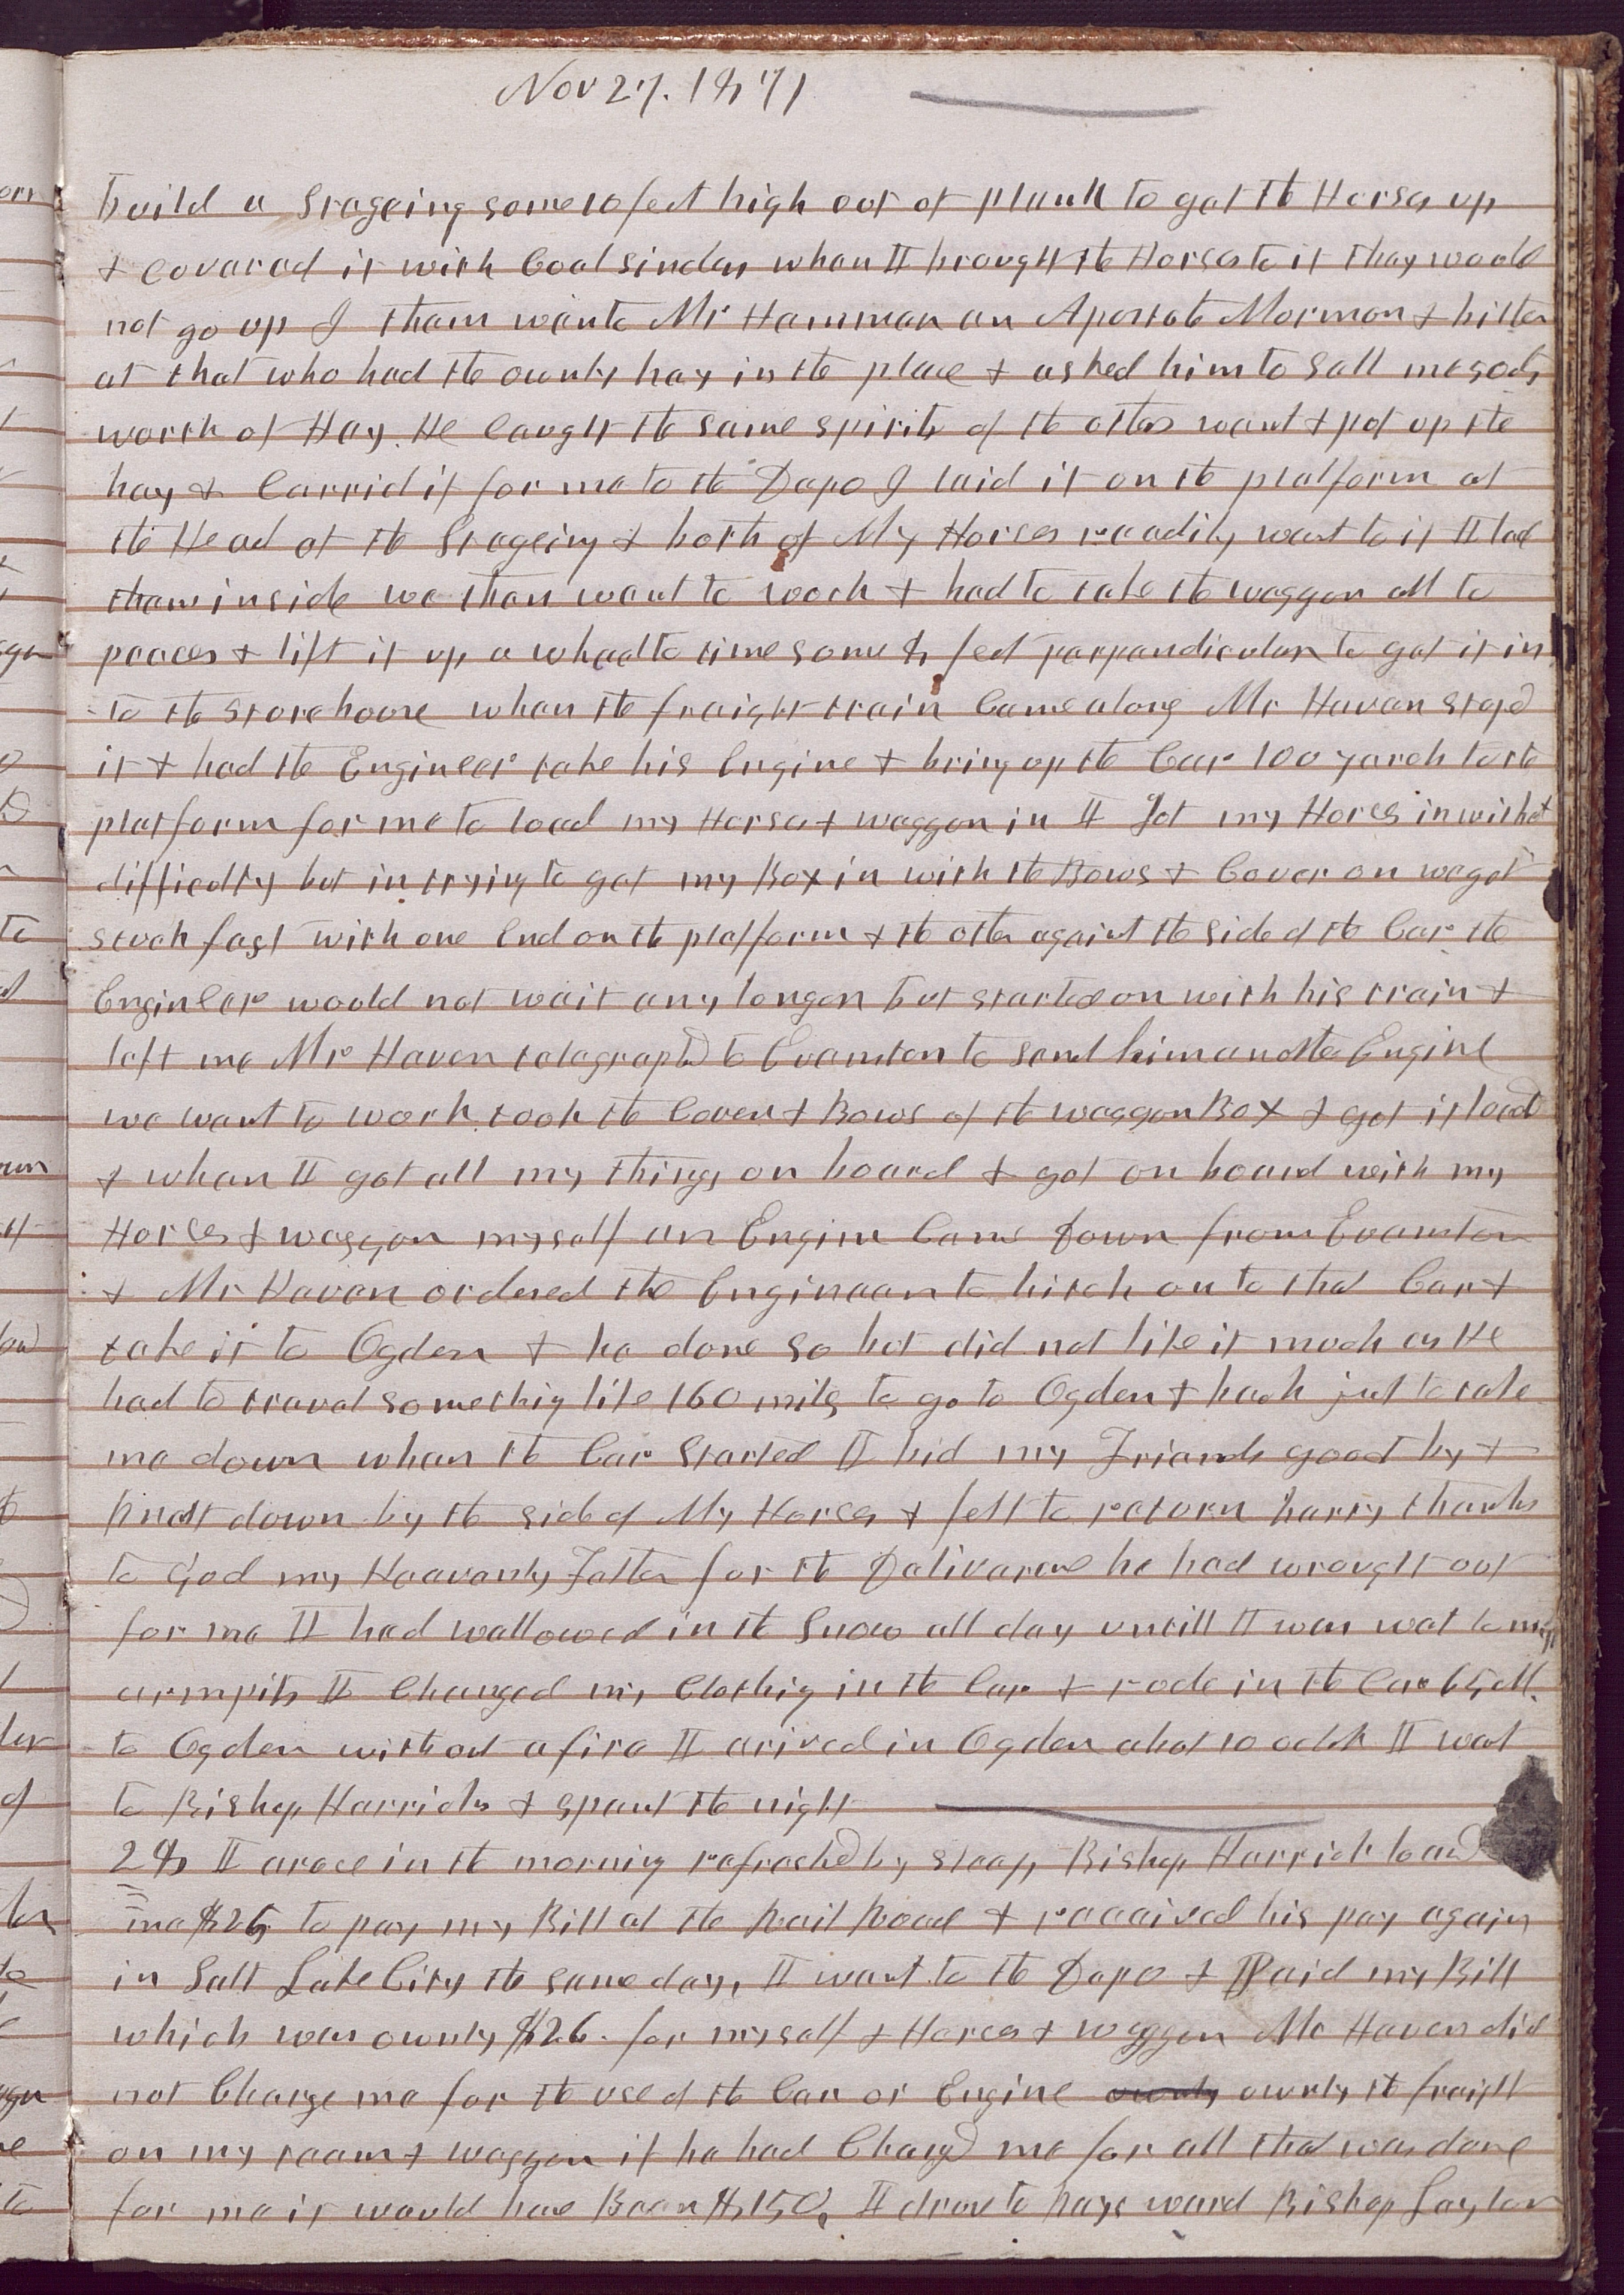 Nov 27. 1871
build a stageing some 10 feet high out of plank to get the Horses up
& covered it with Coal sinders when I brought the Horses to it they would
not go up I then went to Mr Hamman an Apostate Mormon & bitter
at that who had the ownly hay in the place & asked him to sell me 50cts
worth of Hay. He caught the same spirit of the others went & put up the
hay & Carrid it for me to the Depo I laid it on the platform at
the Head of the Stageing & both of My Horses readily went to it I tied
them inside we then went to work & had to take the waggon all to
peaces & lift it up a wheel to time some 8 feet perpendicular to get it in
to the storehouse when the freight train Came along Mr Haven stopd
it & had the Engineer take his Engine & bring up the Car 100 yards to the
platform for me to load my Horses & waggon in I got my Horses in without
difficulty but in trying to get my Box in with the Bows & Cover on we got
stuck fast with one End on the platform & the other against the side of the Car the
Engineer would not wait any longer but started on with his train &
left me Mr Haven telagraphed to Evanston to send him another Engine
we went to work took the Cover & Bows of the waggon Box & got it load
& when I got all my things on board & got on board with my
Horses & waggon myself an Engine Came Down from Evanston
& Mr Haven ordered the Engineer to hitch on to that Car &
take it to Ogden & he done so but did not like it much as He
had to travel something like 160 miles to go to Ogden & back just to take
me down when the Car Started I bid my Friends good by &
knelt down by the side of My Horses & felt to return harty thanks
to God my Heavenly Father for the Deliverance he had wrought out
for me I had wallowed in the Snow all day untill I was wet to my
armpits I Changed my Clothing in the Car & rode in the Car 65 M.
to Ogden without a fire I arived in Ogden about 10 oclok I went
to Bishop Harricks & spent the night
28 I arose in the morning refreshed by sleep Bishop Harrick loaned
me $26 to pay my Bill at the Rail Road & received his pay again
in Salt Lake City the same day, I went to the Depo & Paid my Bill
which was ownly $26. for myself & Horses & waggon Mr Haven did
not Charge me for the use of the Car or Engine ownly ownly the freight
on my team & waggon if he had Charged me for all that was done
for me it would have Been $150, I drove to Kays ward Bishop Layton